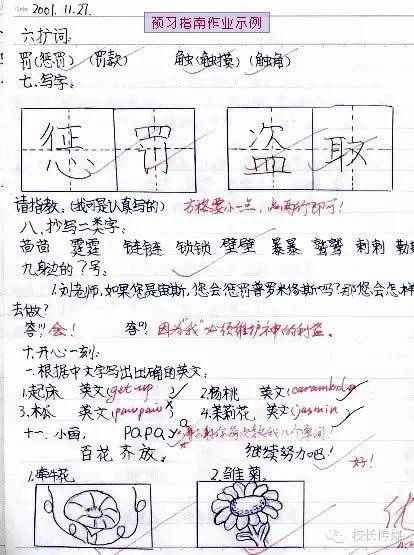 2001.11.27.
预习指南作业示例
六.扩词:
罚(惩罚)(罚款) 触(触摸)(触角)
七.写字:
惩 罚 盗 取
请指教:(我可是认真写的) 方格要小一点,占两行即可!
八.抄写二类字:
苗苗 霆霆 链链 锁锁 壁壁 暴暴 鹫鹫 刺刺
九.身边的?号:
1.刘老师,如果您是宙斯,您会惩罚普罗米修斯吗?那您会怎样
去做?
答:会! 答: 因为“我”必须维护神的利益。
十.开心一刻:
一.根据中文字写出正确的英文:
1.起床 英文(get up) 2.杨桃 英文(carambola)
3.木瓜 英文(pawpaw) 4.茉莉花 英文(jasmin)
十一.小画, papa
百花齐放。 继续努力吧! 好!
1.牵牛花 2.雏菊.
优
校长传媒